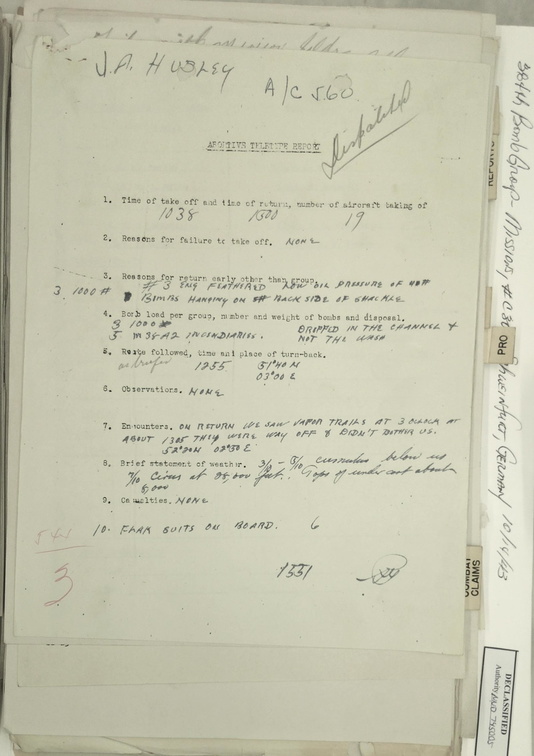 J.A. HUSLEY
A/C 560
Dispatched
ABORTIVE TELETYPE REPORT
1. Time of take off and time of return, number of aircraft taking of
1038 1500 19
2. Reasons for failure to take off. NONE
3. Reasons for return early other than group.
# 3 ENG FEATHERED LOW OIL PRESSURE OF 40#
3 1000 # BOMBS HANGING ON BACK SIDE OF SHACKLE
4. Bomb load per group, number and weight of bombs and disposal.
3 1000 # DROPPED IN THE CHANNEL &
5 M38-A2 INCENDIARIES. NOT THE WASH
5. Route followed, time and place of turn-back.
as briefed 1255 51°40 N
03°00 E
6. Observations. NONE
7. Encounters. ON RETURN WE SAW VAPOR TRAILS AT 3 OCLOCK AT
ABOUT 1305 THEY WERE WAY OFF & DIDN'T BOTHER US.
52°20N 02°30 E.
8. Brief statement of weather. 3/10 - 5/10 cumulus below us
7/10 Cirrus at feet. Tops of undercast about
9. Casualties. NONE
10. FLAK SUITS ON BOARD. 6
3
1551
384th Bomb Group Mission, Schweinfurt, Germany 10/14/43
REPORTS
PRO
COMBAT
CLAIMS
DECLASSIFIED
Authority NND 745005